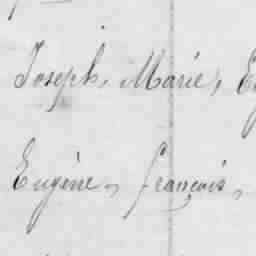 Joseph, Marie,
Eugène, François,